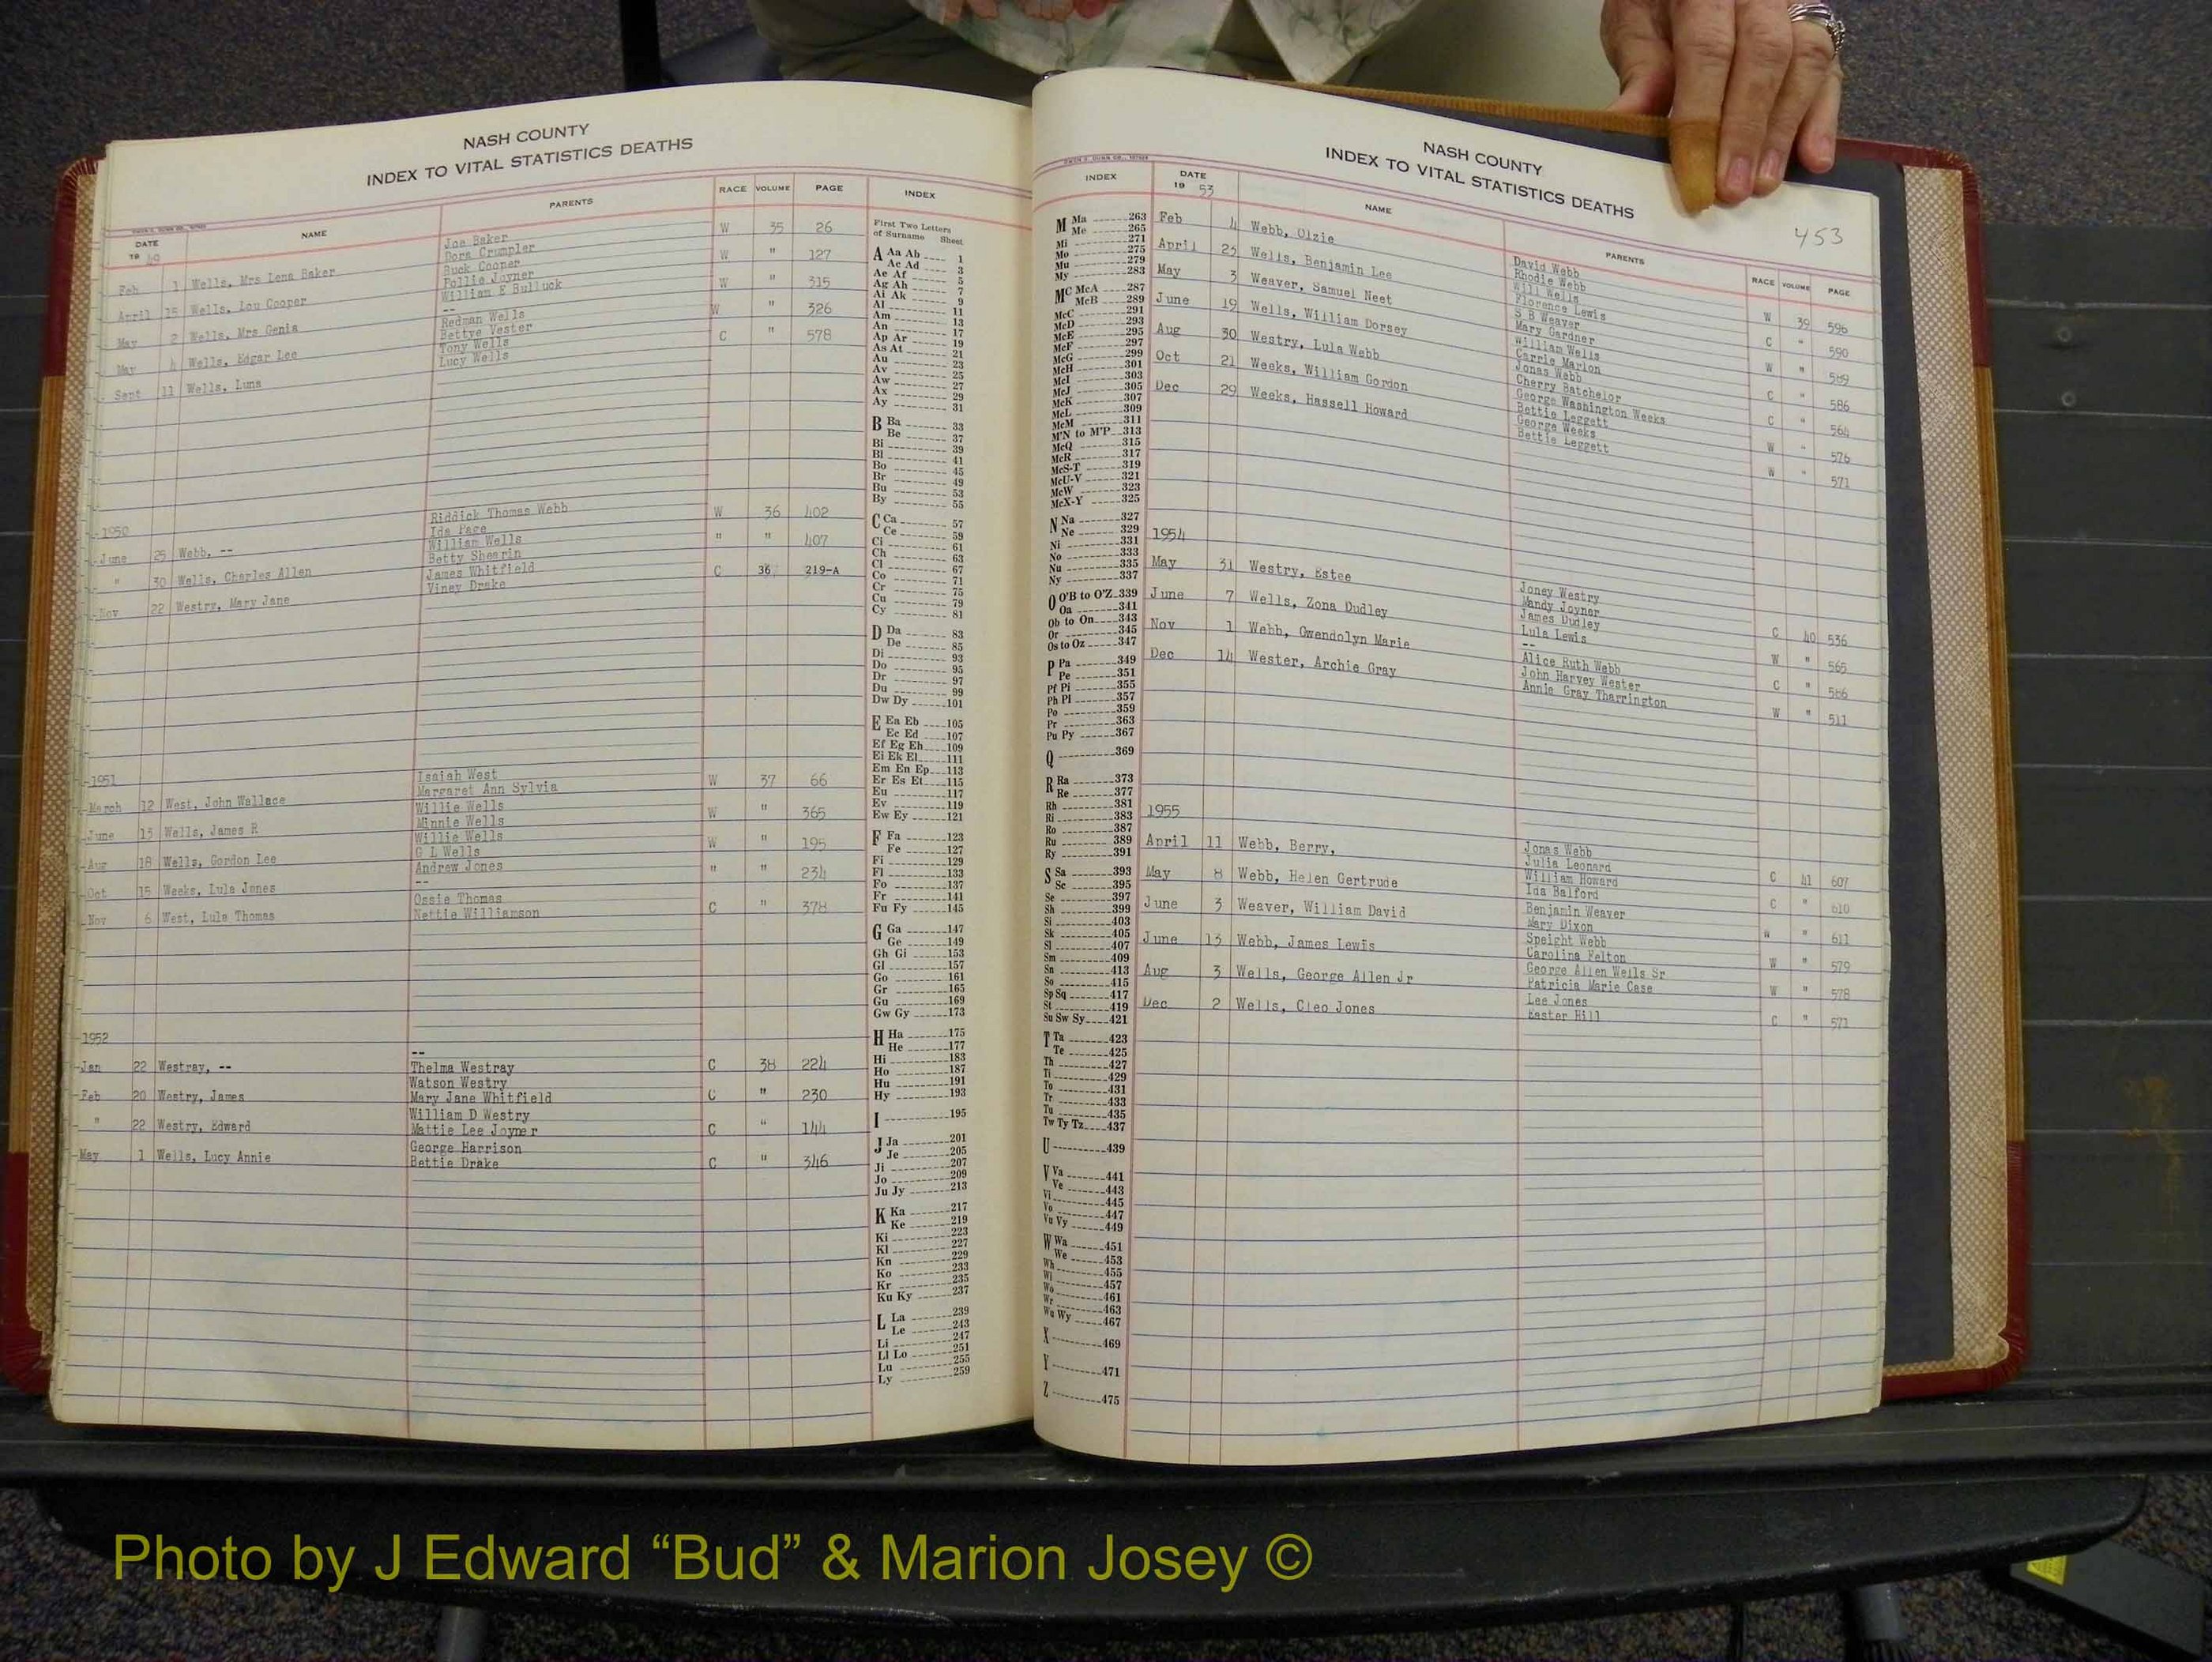 NASH COUNTY
INDEX TO VITAL STATISTICS DEATHS
DATE NAME PARENTS RACE VOLUME PAGE INDEX
19
Feb 1 Wells, Mrs Lena Baker Joe Baker W 35 26
Dora Crumpler
April 15 Wells, Lou Cooper Buck Cooper W " 127
Pollie Joyner
May 2 Wells, Mrs Genia William E Bulluck W " 315
--
May 4 Wells, Edgar Lee Redman Wells W " 326
Bettye Vester
Sept 11 Wells, Luna Tony Wells C " 578
Lucy Wells
1950
June 25 Webb, -- Riddick Thomas Webb W 36 402
Ida Page
" 30 Wells, Charles Allen William Wells " " 407
Betty Shearin
Nov 22 Westry, Mary Jane James Whitfield C 36 219-A
Viney Drake
1951
March 12 West, John Wallace Isaiah West W 37 66
Margaret Ann Sylvia
June 13 Wells, James R Willie Wells W " 365
Minnie Wells
Aug 18 Wells, Gordon Lee Willie Wells W " 195
G L Wells
Oct 15 Weeks, Lula Jones Andrew Jones " " 234
--
Nov 6 West, Lula Thomas Ossie Thomas C " 378
Nettie Williamson
1952
--
Jan 22 Westray, -- Thelma Westray C 38 224
Watson Westry
Feb 20 Westry, James Mary Jane Whitfield C " 230
William D Westry
" 22 Westry, Edward Mattie Lee Joyner C " 144
George Harrison
May 1 Wells, Lucy Annie Bettie Drake C " 346
First Two Letters
of Surname Sheet
A Aa Ab 1
Ac Ad 3
Ae Af 5
Ag Ah 7
Ai Ak 9
Al 11
Am 13
An 17
Ap Ar 19
As At 21
Au 23
Av 25
Aw 27
Ax 29
Ay 31
B Ba 33
Be 37
Bi 39
Bl 41
Bo 45
Br 49
Bu 53
By 55
C Ca 57
Ce 59
Ci 61
Ch 63
Cl 67
Co 71
Cr 75
Cu 79
Cy 81
D Da 83
De 85
Di 93
Do 95
Dr 97
Du 99
Dw Dy 101
E Ea Eb 105
Ec Ed 107
Ef Eg Eh 109
Ei Ek El 111
Em En Ep 113
Er Es Et 115
Eu 117
Ev 119
Ew Ey 121
F Fa 123
Fe 127
Fi 129
Fl 133
Fo 137
Fr 141
Fu Fy 145
G Ga 147
Ge 149
Gh Gi 153
Gl 157
Go 161
Gr 165
Gu 169
Gw Gy 173
H Ha 175
He 177
Hi 183
Ho 187
Hu 191
Hy 193
I 195
J Ja 201
Je 205
Ji 207
Jo 209
Ju Jy 213
K Ka 217
Ke 219
Ki 223
Kl 227
Kn 229
Ko 233
Kr 235
Ku Ky 237
L La 239
Le 243
Li 247
Ll Lo 251
Lu 255
Ly 259
NASH COUNTY
INDEX TO VITAL STATISTICS DEATHS
453
INDEX DATE NAME PARENTS RACE VOLUME PAGE
19 53
M Ma 263
Me 265
Mi 271
Mo 275
Mu 279
My 283
Mc McA 287
McB 289
McC 291
McD 293
McE 295
McF 297
McG 299
McH 301
McI 303
McJ 305
McK 307
McL 309
McM 311
M'N to M'P 313
McQ 315
McR 317
McS-T 319
McU-V 321
McW 323
McX-Y 325
N Na 327
Ne 329
Ni 331
No 333
Nu 335
Ny 337
O O'B to O'Z 339
Oa 341
Ob to On 343
Or 345
Os to Oz 347
P Pa 349
Pe 351
Pf Pi 355
Ph Pl 357
Po 359
Pr 363
Pu Py 367
Q 369
R Ra 373
Re 377
Rh 381
Ri 383
Ro 387
Ru 389
Ry 391
S Sa 393
Sc 395
Se 397
Sh 399
Si 403
Sk 405
Sl 407
Sm 409
Sn 413
So 415
Sp Sq 417
St 419
Su Sw Sy 421
T Ta 423
Te 425
Th 427
Ti 429
To 431
Tr 433
Tu 435
Tw Ty Tz 437
U 439
V Va 441
Ve 443
Vi 445
Vo 447
Vu Vy 449
W Wa 451
We 453
Wh 455
Wi 457
Wo 461
Wr 463
Wu Wy 467
X 469
Y 471
Z 475
Feb 4 Webb, Olzie David Webb W 39 596
Rhodie Webb
April 25 Wells, Benjamin Lee Will Wells C " 590
Florence Lewis
May 3 Weaver, Samuel Neet S B Weaver W " 589
Mary Gardner
June 19 Wells, William Dorsey William Wells C " 586
Carrie Marion
Aug 30 Westry, Lula Webb Jonas Webb C " 564
Cherry Batchelor
Oct 21 Weeks, William Gordon George Washington Weeks W " 576
Bettie Leggett
Dec 29 Weeks, Hassell Howard George Weeks W " 571
Bettie Leggett
1954
May 31 Westry, Estee Joney Westry C 40 536
Mandy Joyner
June 7 Wells, Zona Dudley James Dudley W " 565
Lula Lewis
Nov 1 Webb, Gwendolyn Marie -- C " 586
Alice Ruth Webb
Dec 14 Wester, Archie Gray John Harvey Wester W " 511
Annie Gray Tharrington
1955
April 11 Webb, Berry, Jonas Webb C 41 607
Julia Leonard
May 8 Webb, Helen Gertrude William Howard C " 610
Ida Balford
June 3 Weaver, William David Benjamin Weaver W " 611
Mary Dixon
June 13 Webb, James Lewis Speight Webb W " 579
Carolina Felton
Aug 3 Wells, George Allen Jr George Allen Wells Sr W " 578
Patricia Marie Case
Dec 2 Wells, Cleo Jones Lee Jones C " 571
Easter Hill
Photo by J Edward “Bud” & Marion Josey ©